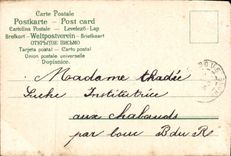 Carte Postale
Postkarte - Post card
Cartolina Postale - Levelező-Lap
Brefkort - Weltpostverein - Briefkaart
ОТКРЫТОЕ ПИСЬМО
Tarjeta postal - Carta postal
Union postale universelle
Dopisnice.
Madame Thadée
Institutrice
aux Chabauds
par Bouc B du R